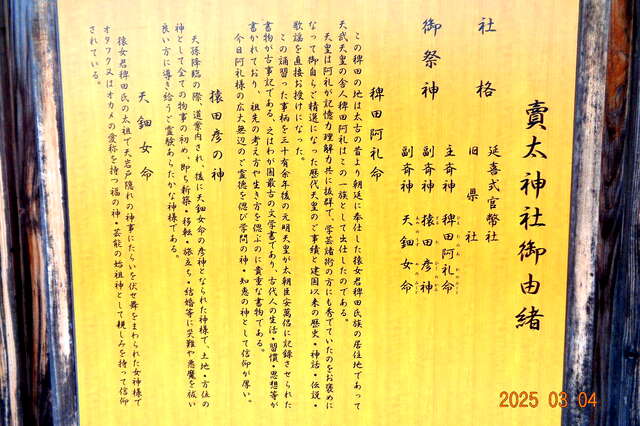 賣太神社御由緒
社格 延喜式官幣社
旧県社
御祭神 主斎神 稗田阿礼命
副斎神 猿田彦神
副斎神 天鈿女命
稗田阿礼命
この稗田の地は太古の昔より朝廷に奉仕した猿女君稗田氏族の居住地であって
天武天皇の舎人稗田阿礼はこの一族として出仕したのである。
天皇は阿礼が記憶力理解力共に抜群で、学芸諸術の方にも秀でていたのをお褒めに
なって御自らご精選になった歴代天皇のご事績と建国以来の歴史・神話・伝説・
歌謡を直接お授けになった。
この誦習った事柄を三十有余年後の元明天皇が太朝臣安萬侶に記録させられた
書物が古事記である。之はわが国最古の文学書であり、古代人の生活・習慣・思想等が
書かれており、祖先の考え方や生き方を偲ぶのに貴重な書物である。
今日阿礼様の広大無辺のご霊徳を偲び学問の神・知恵の神として信仰が厚い。
猿田彦の神
天孫降臨の際、道案内され、後に天鈿女命の彦神となられた神様で、土地・方位の
神として全ての物事の初め、即ち新築・移転・旅立ち・結婚等に災難や悪魔を祓い
良い方に導き給うご霊験あらたかな神様である。
天鈿女命
猿女君稗田氏の太祖で天岩戸隠れの神事にたらいを伏せ舞をまわられた女神様で
オタフク又はオカメの愛称を持つ福の神・芸能の始祖神として親しみを持って信仰
されている。
2025 03 04